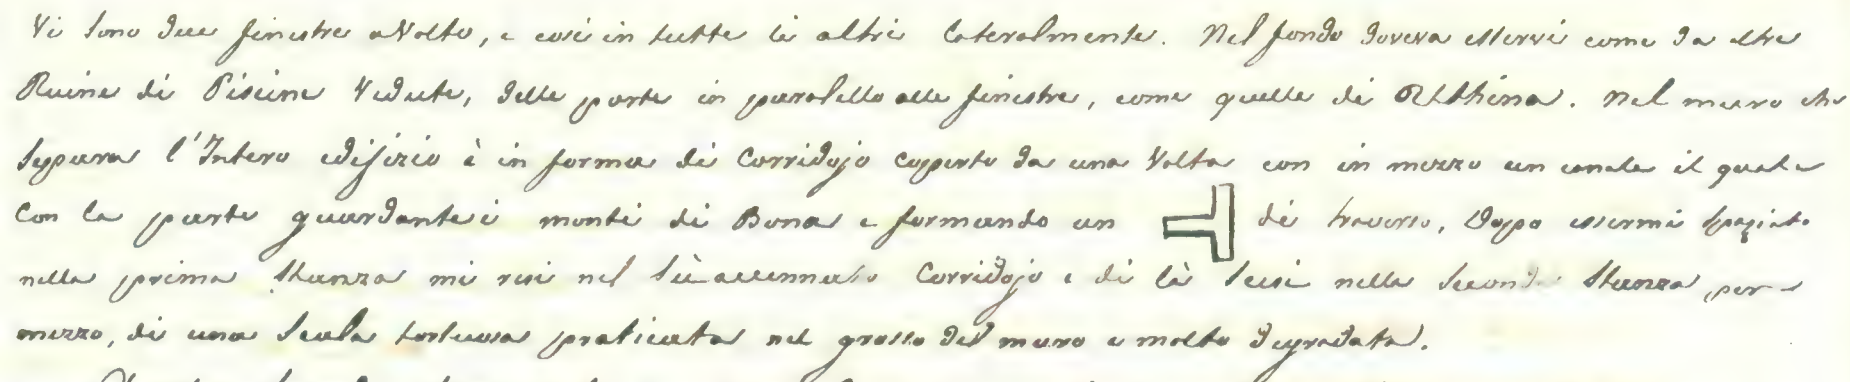 Vi sono due finestre a Volto, e così in tutte le altre lateralmente. Nel fondo doveva esservi come da altre
Ruine di Piscine Vedute, delle porte in paralello alle finestre, come quelle di Uthina. Nel muro che
separa l'Intero edifizio è in forma di Corridojo coperto da una Volta con in mezzo un canale il quale
Con la parte guardante i monti di Bona e formando un di traverso, Dopo essermi spaziato
nella prima Stanza mi resi nel sù accennato Corridojo e di là scesi nella seconda Stanza, per
mezzo, di una Scala tortuosa praticata nel grosso del muro e molto degradata.